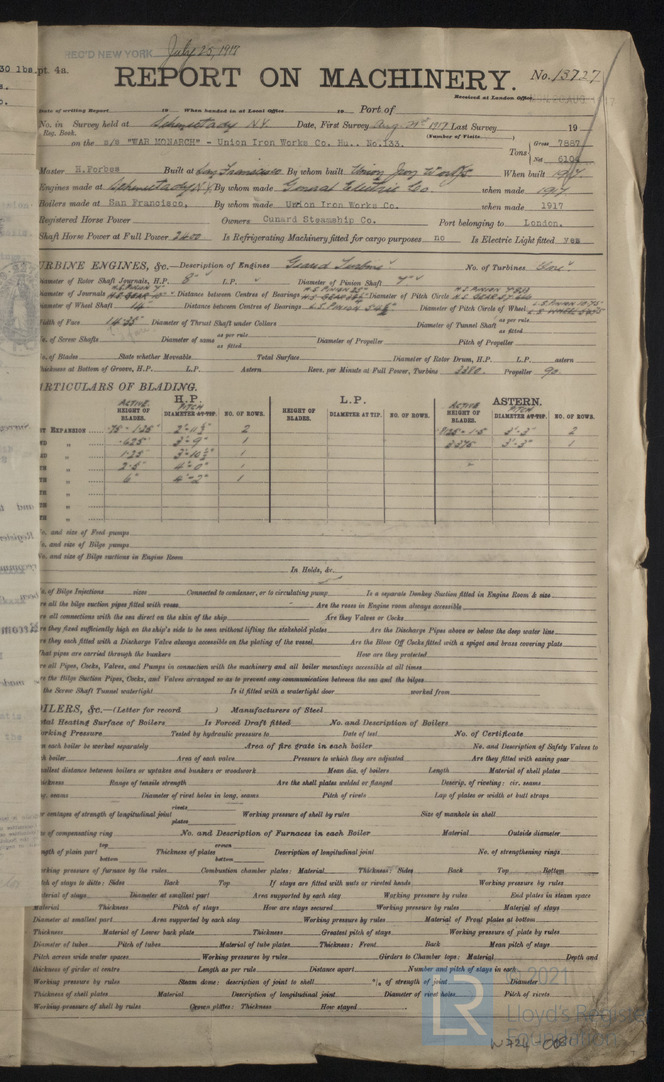 REC'D NEW YORK July 25, 1917
pt. 4a.
30 lbs.
REPORT ON MACHINERY. No. 13727
Received at London Office
Date of writing Report 19 When handed in at Local Office 19 Port of
No. in Survey held at Schenectady N.Y. Date, First Survey Last Survey 19
Reg. Book. (Number of Visits)
on the s/s "WAR MONARCH" - Union Iron Works Co. Hu.. No.133. Tons Gross 7887
Net 6104
Master H.Forbes Built at San Francisco By whom built Union Iron Works When built 1917
Engines made at Schenectady N.Y. By whom made General Electric Co when made 1917
Boilers made at San Francisco. By whom made Union Iron Works Co. when made 1917
Registered Horse Power Owners Cunard Steamship Co. Port belonging to London.
Shaft Horse Power at Full Power 2600 Is Refrigerating Machinery fitted for cargo purposes no Is Electric Light fitted yes
TURBINE ENGINES, &c.—Description of Engines Geared Turbine No. of Turbines One
Diameter of Rotor Shaft Journals, H.P. 8" L.P. Diameter of Pinion Shaft 7"
Diameter of Journals Distance between Centres of Bearings Diameter of Pitch Circle
Diameter of Wheel Shaft 14" Distance between Centres of Bearings Diameter of Pitch Circle of Wheel
Width of Face Diameter of Thrust Shaft under Collars Diameter of Tunnel Shaft as per rule
as fitted
No. of Screw Shafts Diameter of same as per rule
as fitted Diameter of Propeller Pitch of Propeller
No. of Blades State whether Moveable Total Surface Diameter of Rotor Drum, H.P. L.P. astern
Thickness at Bottom of Groove, H.P. L.P. Astern Revs. per Minute at Full Power, Turbine Propeller 90
PARTICULARS OF BLADING.
H.P. L.P. ASTERN.
ACTIVE PITCH ACTIVE PITCH
HEIGHT OF BLADES. DIAMETER AT TIP. NO. OF ROWS. HEIGHT OF BLADES. DIAMETER AT TIP. NO. OF ROWS. HEIGHT OF BLADES. DIAMETER AT TIP. NO. OF ROWS.
ST EXPANSION .75 - 1.25" 2 3'-3" 2
ND " .625" 3'-9" 1 3'-3" 1
RD " 1.25" 1
TH " 2.5" 4'-0" 1
TH " 6" 4'-2" 1
TH "
TH "
TH "
No. and size of Feed pumps
No. and size of Bilge pumps
No. and size of Bilge suctions in Engine Room
In Holds, &c.
No. of Bilge Injections sizes Connected to condenser, or to circulating pump Is a separate Donkey Suction fitted in Engine Room & size
Are all the bilge suction pipes fitted with roses Are the roses in Engine room always accessible
Are all connections with the sea direct on the skin of the ship Are they Valves or Cocks
Are they fixed sufficiently high on the ship's side to be seen without lifting the stokehold plates Are the Discharge Pipes above or below the deep water line
Are they each fitted with a Discharge Valve always accessible on the plating of the vessel Are the Blow Off Cocks fitted with a spigot and brass covering plate
What pipes are carried through the bunkers How are they protected
Are all Pipes, Cocks, Valves, and Pumps in connection with the machinery and all boiler mountings accessible at all times
Are the Bilge Suction Pipes, Cocks, and Valves arranged so as to prevent any communication between the sea and the bilges
Is the Screw Shaft Tunnel watertight Is it fitted with a watertight door worked from
BOILERS, &c.—(Letter for record ) Manufacturers of Steel
Total Heating Surface of Boilers Is Forced Draft fitted No. and Description of Boilers
Working Pressure Tested by hydraulic pressure to Date of test No. of Certificate
Can each boiler be worked separately Area of fire grate in each boiler No. and Description of Safety Valves to
each boiler Area of each valve Pressure to which they are adjusted Are they fitted with easing gear
Smallest distance between boilers or uptakes and bunkers or woodwork Mean dia. of boilers Length Material of shell plates
Thickness Range of tensile strength Are the shell plates welded or flanged Descrip. of riveting: cir. seams
long. seams Diameter of rivet holes in long. seams Pitch of rivets Lap of plates or width of butt straps
Percentages of strength of longitudinal joint rivets
plates Working pressure of shell by rules Size of manhole in shell
Size of compensating ring No. and Description of Furnaces in each Boiler Material Outside diameter
Length of plain part top
bottom Thickness of plates crown
bottom Description of longitudinal joint No. of strengthening rings
Working pressure of furnace by the rules Combustion chamber plates: Material Thickness: Sides Back Top Bottom
Pitch of stays to ditto: Sides Back Top If stays are fitted with nuts or riveted heads Working pressure by rules
Material of stays Diameter at smallest part Area supported by each stay Working pressure by rules End plates in steam space
Material Thickness Pitch of stays How are stays secured Working pressure by rules Material of stays
Diameter at smallest part Area supported by each stay Working pressure by rules Material of Front plates at bottom
Thickness Material of Lower back plate Thickness Greatest pitch of stays Working pressure of plate by rules
Diameter of tubes Pitch of tubes Material of tube plates Thickness: Front Back Mean pitch of stays
Pitch across wide water spaces Working pressures by rules Girders to Chamber tops: Material Depth and
thickness of girder at centre Length as per rule Distance apart Number and pitch of stays in each
Working pressure by rules Steam dome: description of joint to shell % of strength of joint Diameter
Thickness of shell plates Material Description of longitudinal joint Diameter of rivet holes Pitch of rivets
Working pressure of shell by rules Crown plates: Thickness How stayed
© 2021
LR Lloyd's Register Foundation
W724-0081